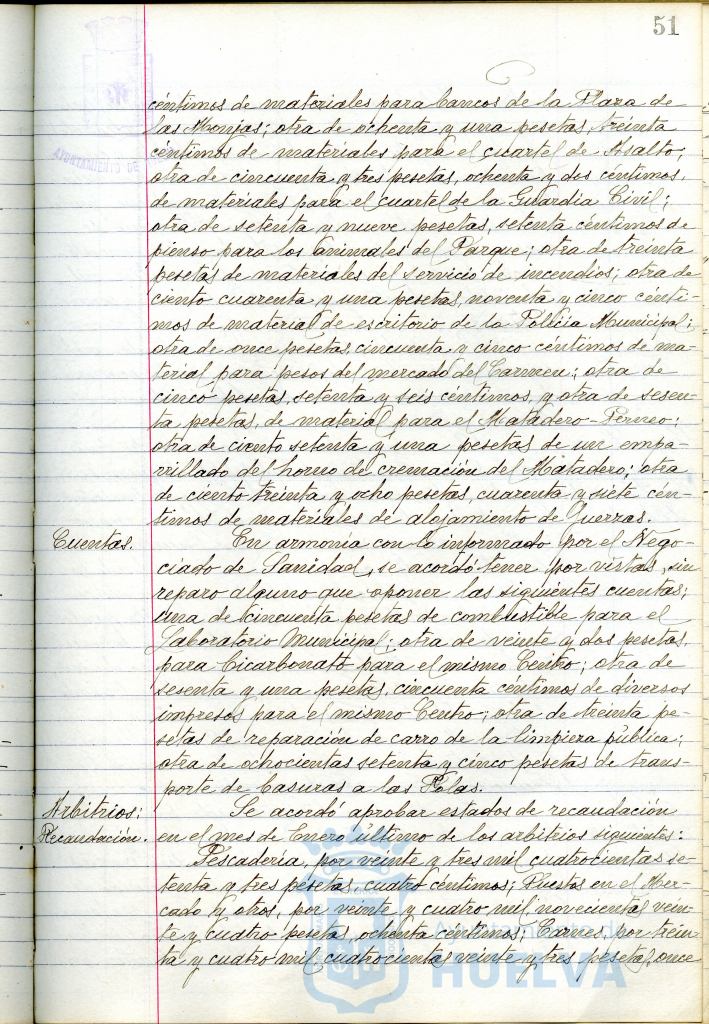 51
céntimos de materiales para bancos de la Plaza de
las Monjas; otra de ochenta y una pesetas, treinta
céntimos de materiales para el cuartel de Asalto;
otra de cincuenta y tres pesetas, ochenta y dos céntimos,
de materiales para el cuartel de la Guardia Civil;
otra de setenta y nueve pesetas, setenta céntimos de
pienso para los animales del Parque; otra de treinta
pesetas de materiales del servicio de incendios; otra de
ciento cuarenta y una pesetas, noventa y cinco cénti-
mos de material de escritorio de la Policía Municipal;
otra de once pesetas, cincuenta y cinco céntimos de ma-
terial para pesos del mercado del Carmen; otra de
cinco pesetas, setenta y seis céntimos, y otra de sesen-
ta pesetas, de material para el Matadero-Perneo;
otra de ciento setenta y una pesetas de un empa-
rrillado del horno de cremación del Matadero; otra
de ciento treinta y ocho pesetas, cuarenta y siete cén-
timos de materiales de alojamiento de fuerzas.
Cuentas. En armonía con lo informado por el Nego-
ciado de Sanidad, se acordó tener por vistas, sin
reparo alguno que oponer las siguientes cuentas;
una de cincuenta pesetas de combustible para el
Laboratorio Municipal; otra de veinte y dos pesetas,
para bicarbonato para el mismo Centro; otra de
sesenta y una pesetas, cincuenta céntimos de diversos
impresos para el mismo Centro; otra de treinta pe-
setas de reparación de carro de la limpieza pública;
otra de ochocientas setenta y cinco pesetas de trans-
porte de basuras a las Rolas.
Arbitrios: Se acordó aprobar estados de recaudación
Recaudación. en el mes de Enero último de los arbitrios siguientes:
Pescadería, por veinte y tres mil cuatrocientas se-
tenta y tres pesetas, cuatro céntimos; Puestos en el Mer-
cado y otros, por veinte y cuatro mil novecientas vein-
te y cuatro pesetas, ochenta céntimos; Carnes, por trein-
ta y cuatro mil cuatrocientas veinte y tres pesetas, once
AYUNTAMIENTO DE
HUELVA